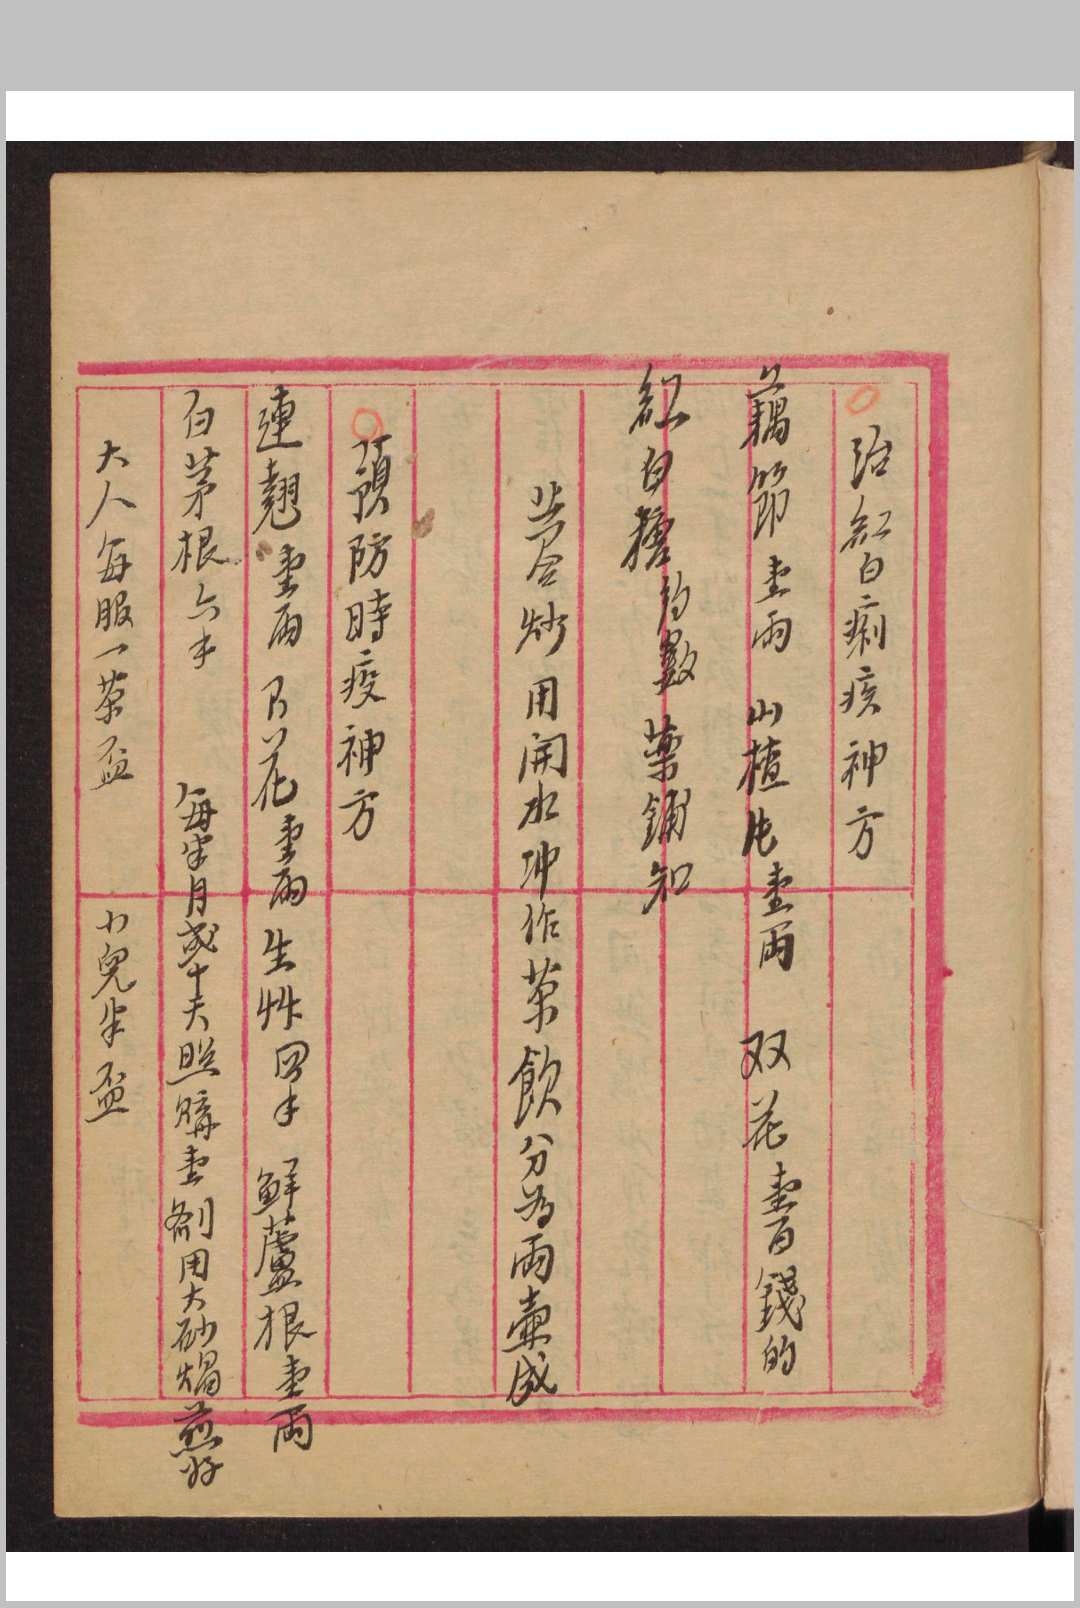 治紅白痢疾神方
藕節壹兩 山楂片壹兩 双花壹百錢的
紅白糖約數 藥鋪知
共合炒用開水冲作茶飲分為兩壺成
預防時疫神方
連翹壹兩 花壹兩 生草 鮮蘆根壹兩
白茅根六 每半月或十天照購壹劑用大砂煎好
大人每服一茶盃 小兒半盃